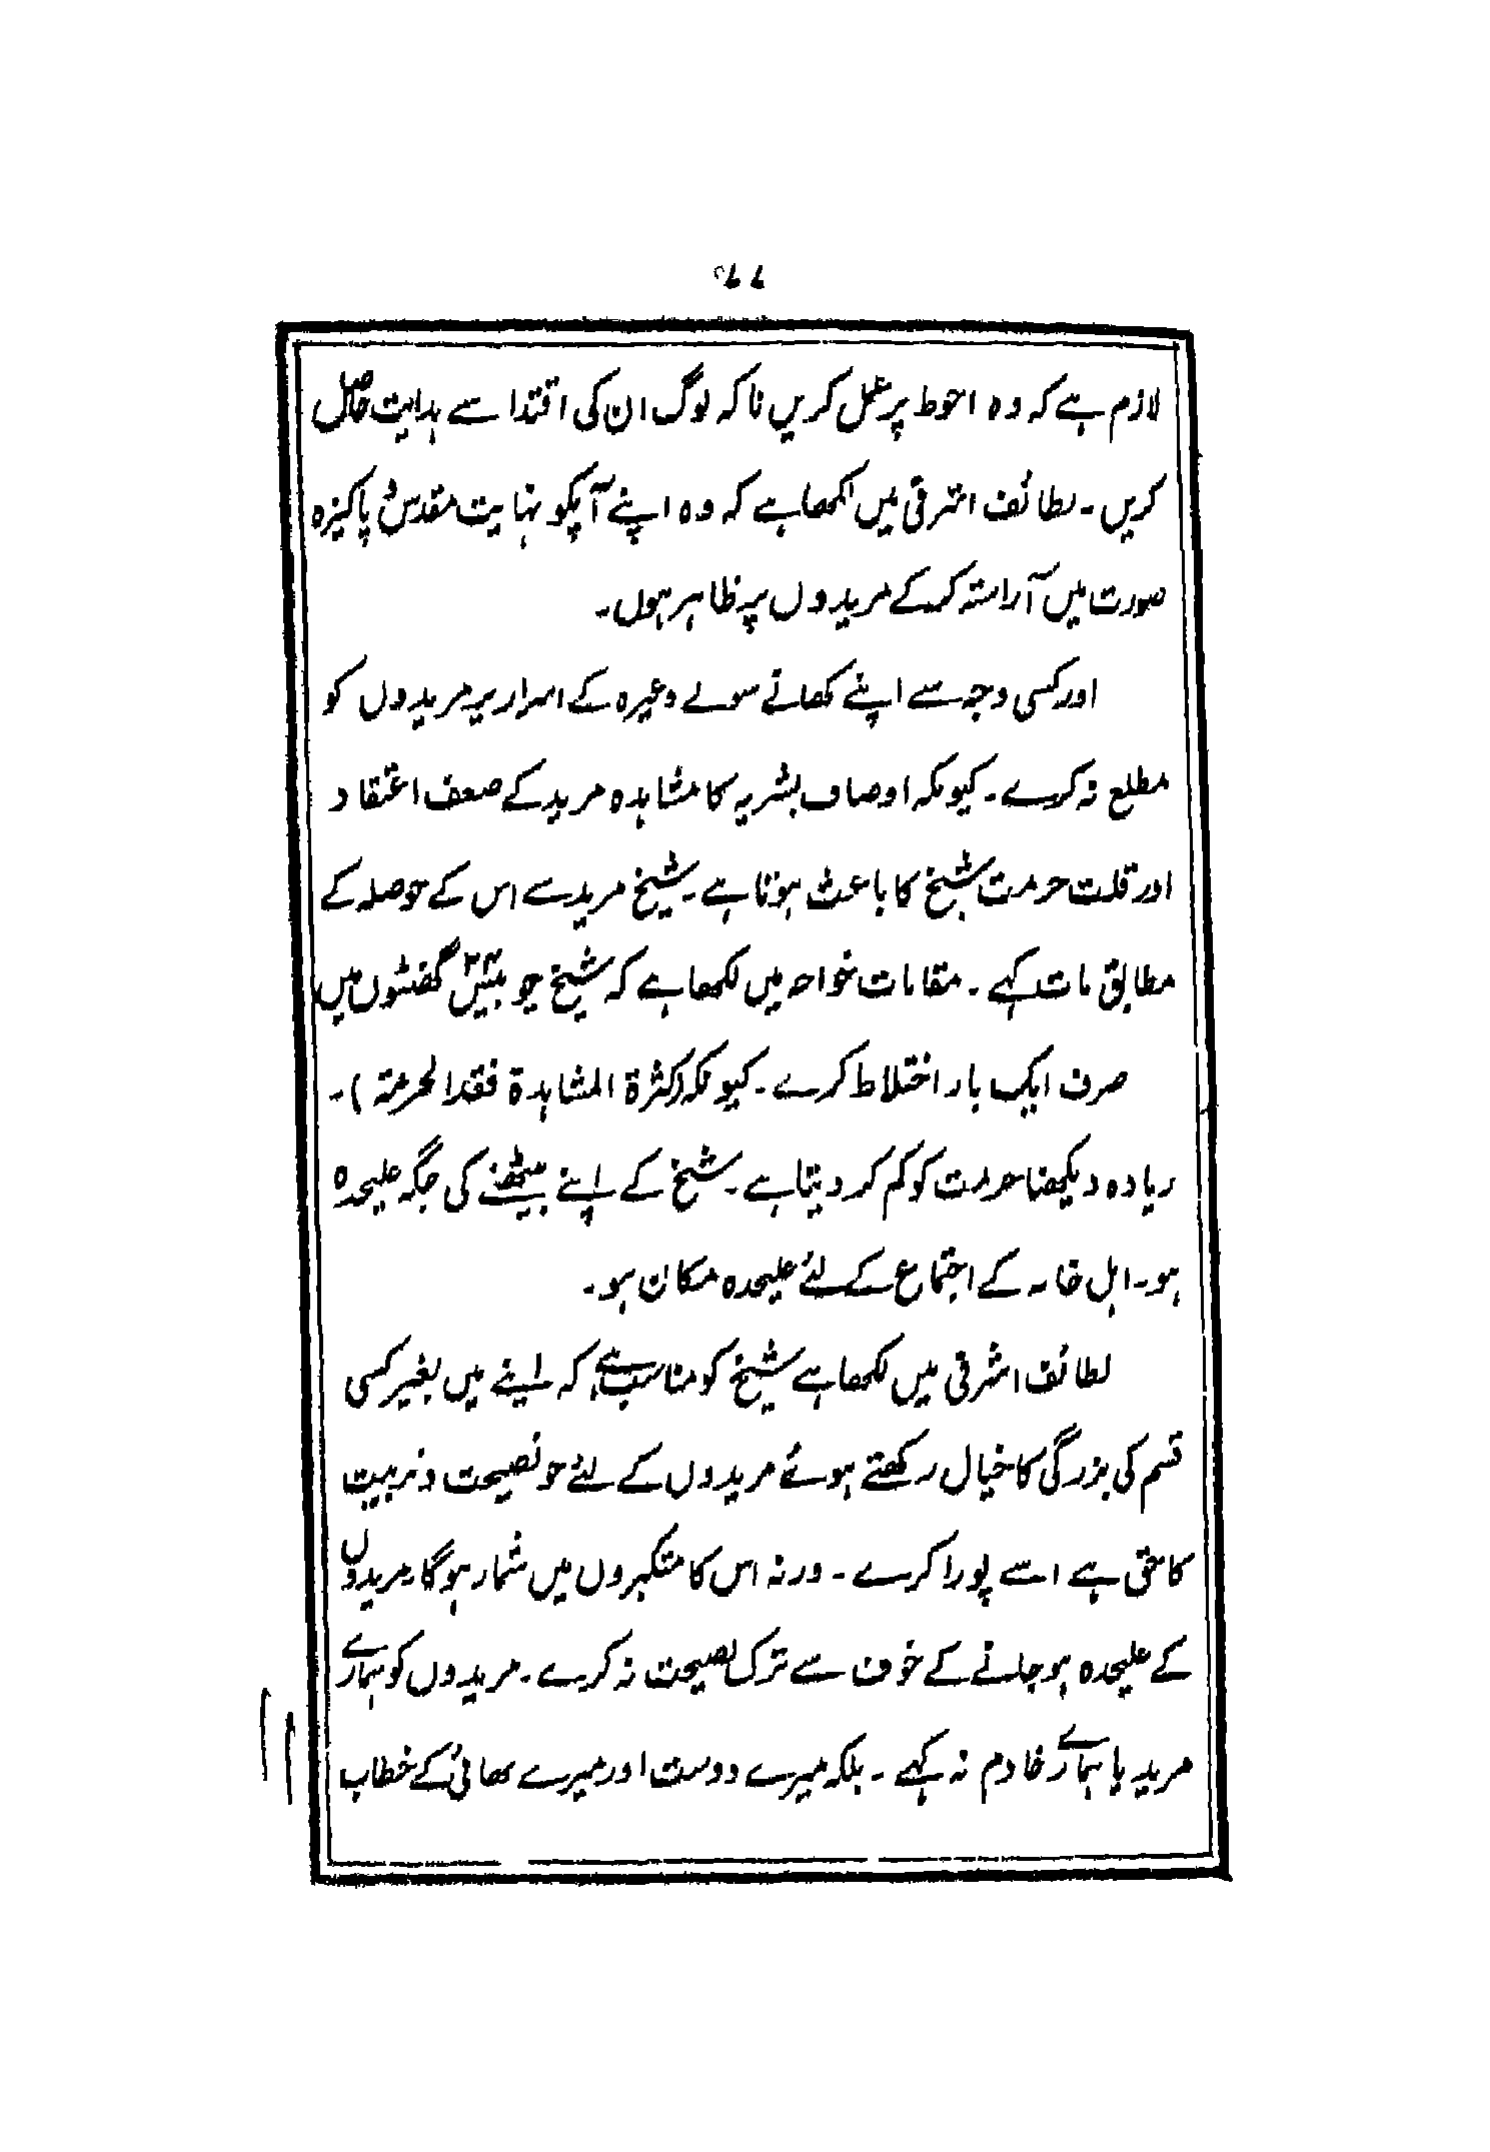 لازم ہے کہ وہ احوط پر عمل کریں تا کہ لوگ ان کی اقتدا سے ہدایت حاصل
کریں۔ لطائف اشرفی میں لکھا ہے کہ وہ اپنے آپکو نہایت مقدس و پاکیزہ
صورت میں آراستہ کر کے مریدوں پر ظاہر ہوں۔
اور کسی وجہ سے اپنے کھانے سونے وغیرہ کے اسرار پر مریدوں کو
مطلع نہ کرے۔ کیونکہ اوصاف بشریہ کا مشاہدہ مرید کے ضعف اعتقاد
اور قلت حرمت شیخ کا باعث ہوتا ہے۔ شیخ مرید سے اس کے حوصلہ کے
مطابق بات کہے۔ مقامات خواجہ میں لکھا ہے کہ شیخ چوبیس ۲۴ گھنٹوں میں
صرف ایک بار اختلاط کرے۔ کیونکہ (کثرۃ المشاہدۃ فقد الحرمتہ)۔
زیادہ دیکھنا حرمت کو کم کر دیتا ہے۔ شیخ کے اپنے بیٹھنے کی جگہ علیحدہ
ہو۔ اہل خانہ کے اجتماع کے لئے علیحدہ مکان ہو۔
لطائف اشرفی میں لکھا ہے شیخ کو مناسب ہے کہ اپنے میں بغیر کسی
قسم کی بزرگی کا خیال رکھتے ہوئے مریدوں کے لئے جو نصیحت و تربیت
کا حق ہے اسے پورا کرے۔ ورنہ اس کا متکبروں میں شمار ہو گا، مریدوں
کے علیحدہ ہو جانے کے خوف سے ترک نصیحت نہ کرے۔ مریدوں کو ہمارے
مرید یا ہمارے خادم نہ کہے۔ بلکہ میرے دوست اور میرے بھائی کے خطاب